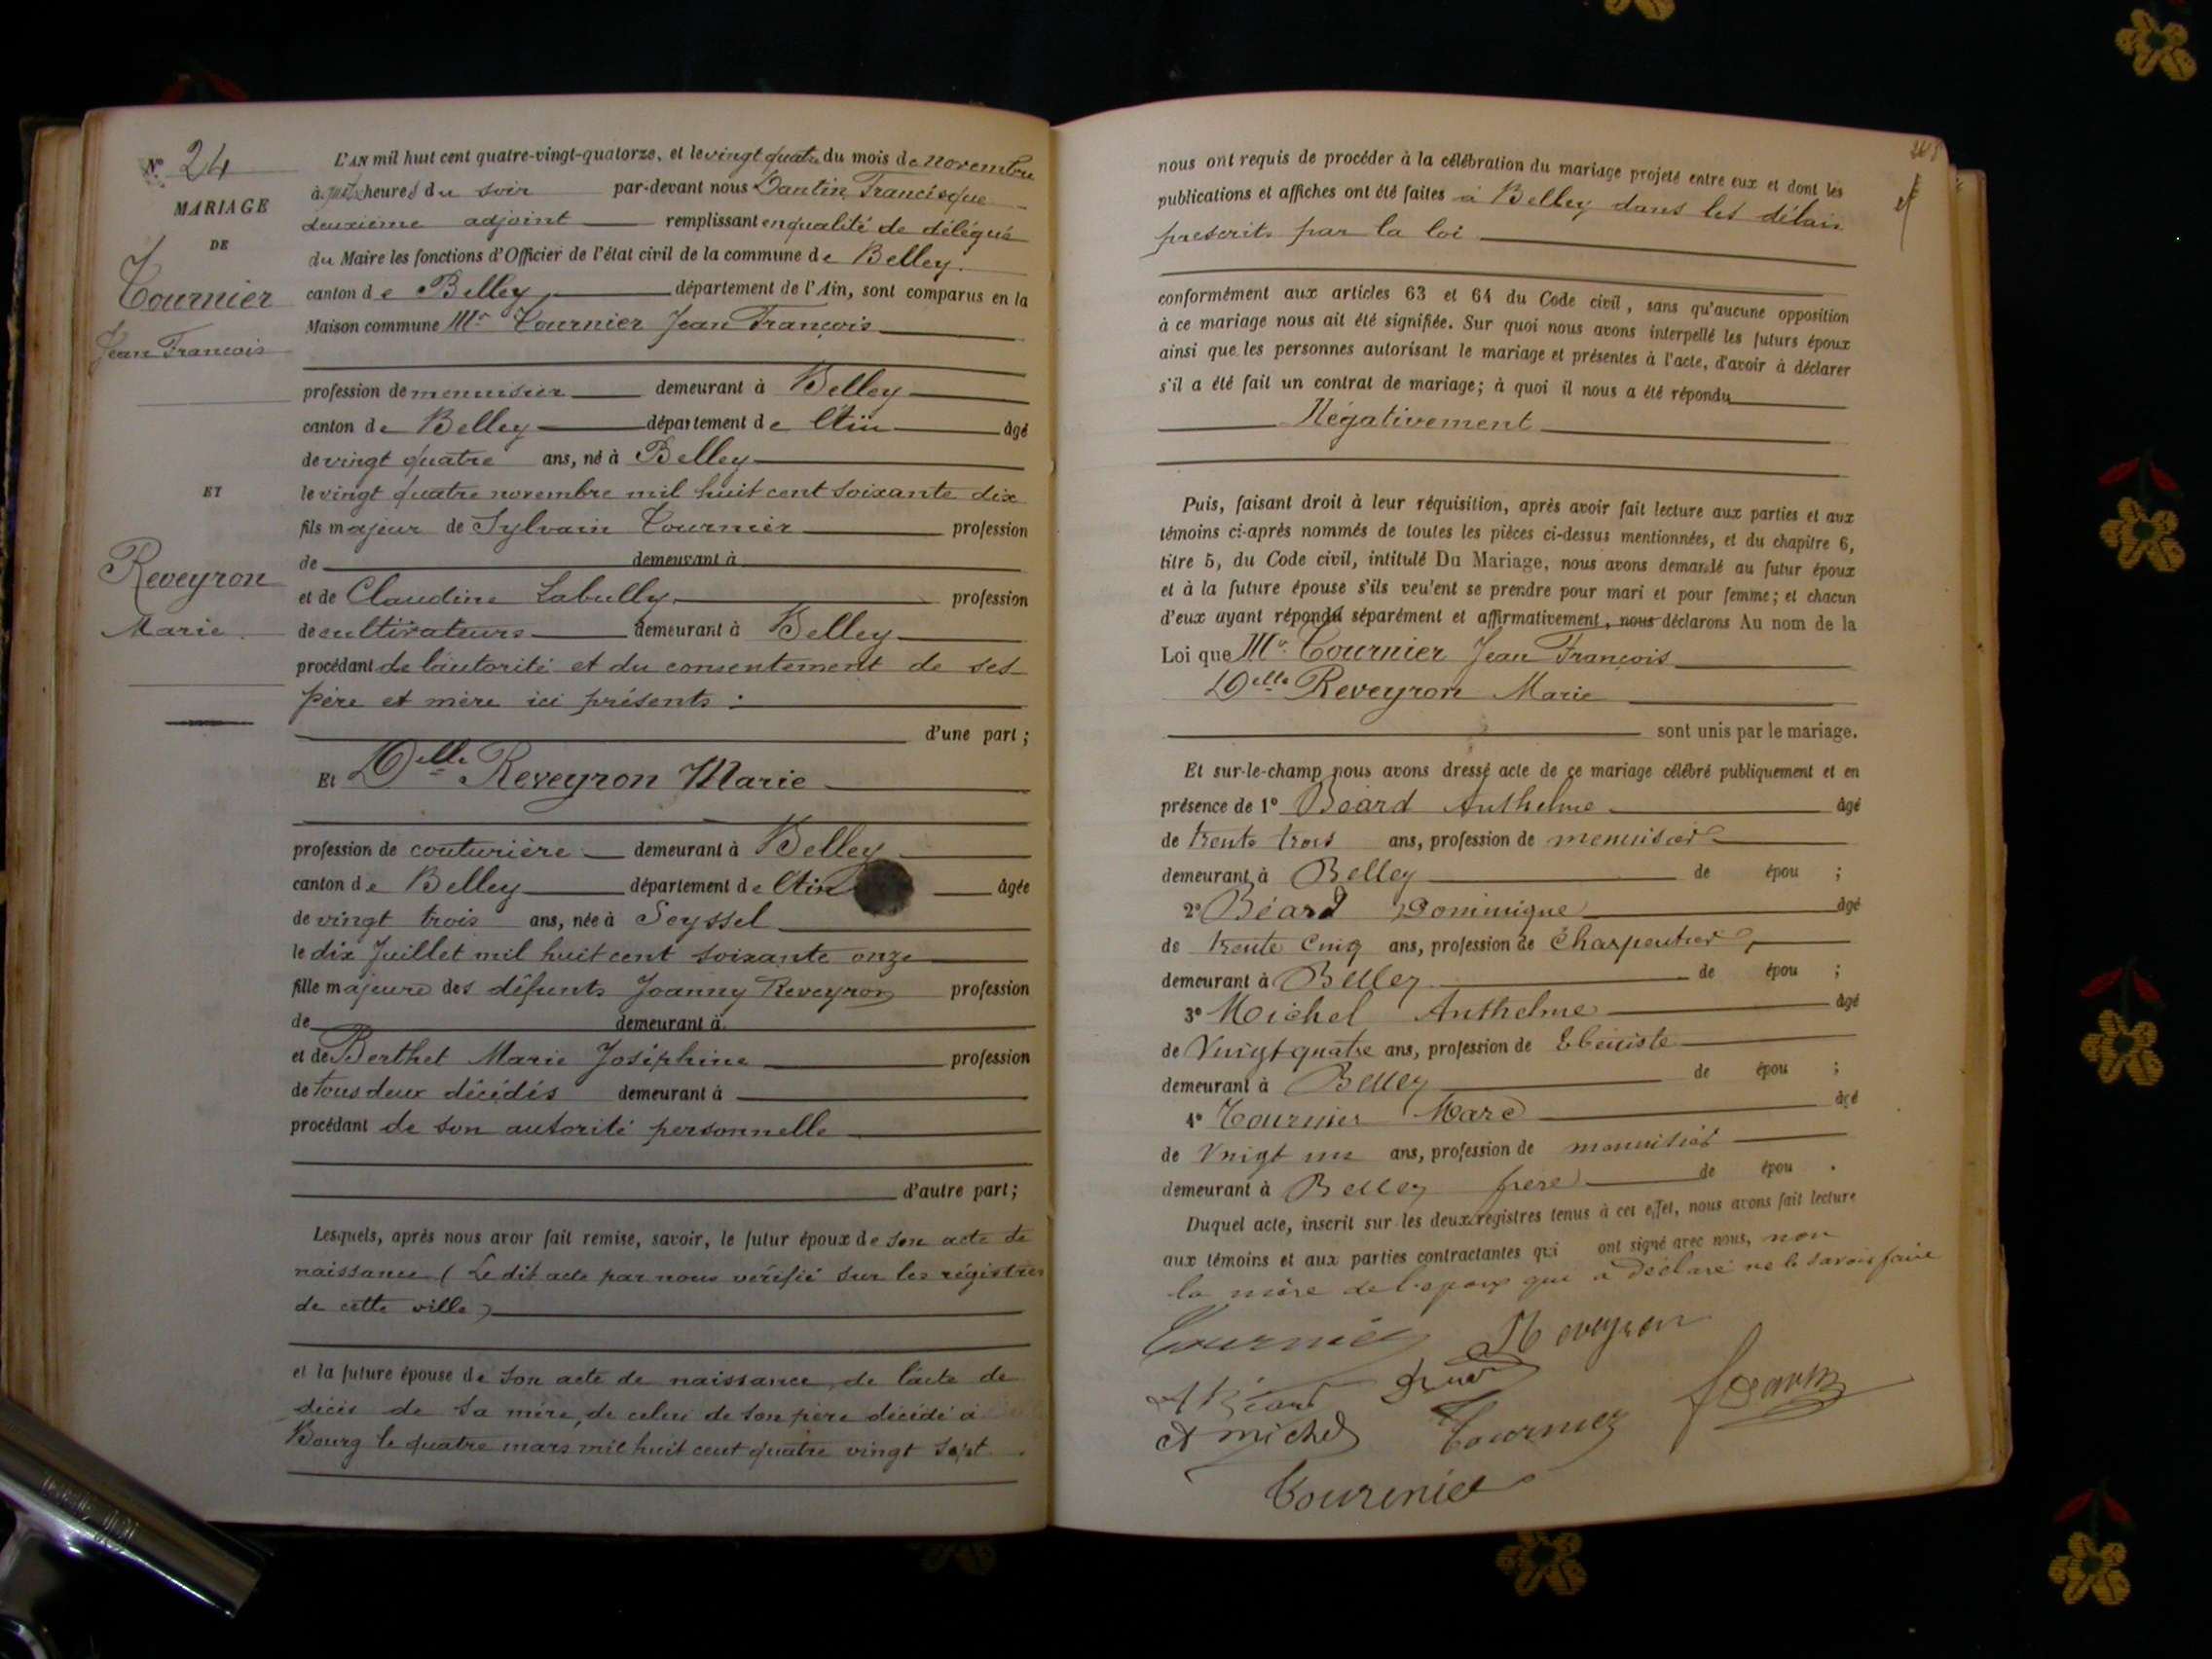 N° 24
MARIAGE
DE
Tournier
Jean François
ET
Reveyron
Marie
L'AN mil huit cent quatre-vingt-quatorze, et le vingt quatre du mois de novembre
à heures du soir par-devant nous Dantin Francisque
deuxième adjoint remplissant en qualité de délégué
du Maire les fonctions d'Officier de l'état civil de la commune de Belley
canton de Belley, département de l'Ain, sont comparus en la
Maison commune Mr Tournier Jean François
profession de menuisier demeurant à Belley
canton de Belley département de l'Ain âgé
de vingt quatre ans, né à Belley
le vingt quatre novembre mil huit cent soixante dix
fils majeur de Sylvain Tournier profession
de demeurant à
et de Claudine Labully profession
de cultivateurs demeurant à Belley
procédant de l'autorité et du consentement de ses
père et mère ici présents :
d'une part ;
Et Delle Reveyron Marie
profession de couturière demeurant à Belley
canton de Belley département de l'Ain âgée
de vingt trois ans, née à Seyssel
le dix Juillet mil huit cent soixante onze
fille majeure des défunts Joanny Reveyron profession
de demeurant à
et de Berthet Marie Joséphine profession
de tous deux décédés demeurant à
procédant de son autorité personnelle
d'autre part ;
Lesquels, après nous avoir fait remise, savoir, le futur époux de son acte de
naissance (Le dit acte par nous vérifié sur les régistres
de cette ville)
et la future épouse de son acte de naissance, de l'acte de
décès de sa mère, de celui de son père décédé à
Bourg le quatre mars mil huit cent quatre vingt sept
nous ont requis de procéder à la célébration du mariage projeté entre eux et dont les
publications et affiches ont été faites à Belley dans les délais
prescrits par la loi
conformément aux articles 63 et 64 du Code civil, sans qu'aucune opposition
à ce mariage nous ait été signifiée. Sur quoi nous avons interpellé les futurs époux
ainsi que les personnes autorisant le mariage et présentes à l'acte, d'avoir à déclarer
s'il a été fait un contrat de mariage ; à quoi il nous a été répondu
Négativement
Puis, faisant droit à leur réquisition, après avoir fait lecture aux parties et aux
témoins ci-après nommés de toutes les pièces ci-dessus mentionnées, et du chapitre 6,
titre 5, du Code civil, intitulé Du Mariage, nous avons demandé au futur époux
et à la future épouse s'ils veulent se prendre pour mari et pour femme ; et chacun
d'eux ayant répondu séparément et affirmativement, nous déclarons Au nom de la
Loi que Mr Tournier Jean François
Delle Reveyron Marie
sont unis par le mariage.
Et sur-le-champ nous avons dressé acte de ce mariage célébré publiquement et en
présence de 1° Béard Anthelme âgé
de trente trois ans, profession de menuisier
demeurant à Belley de épou ;
2° Béard Dominique âgé
de trente cinq ans, profession de Charpentier,
demeurant à Belley de épou ;
3° Michel Anthelme âgé
de Vingt quatre ans, profession de Ebéniste
demeurant à Belley de épou ;
4° Tournier Marc âgé
de Vingt un ans, profession de menuisier
demeurant à Belley frère de épou .
Duquel acte, inscrit sur les deux registres tenus à cet effet, nous avons fait lecture
aux témoins et aux parties contractantes qui ont signé avec nous, non
la mère de l'époux qui a déclaré ne le savoir faire
Tournier Reveyron
A Béard
A Michel Tournier
Tournier